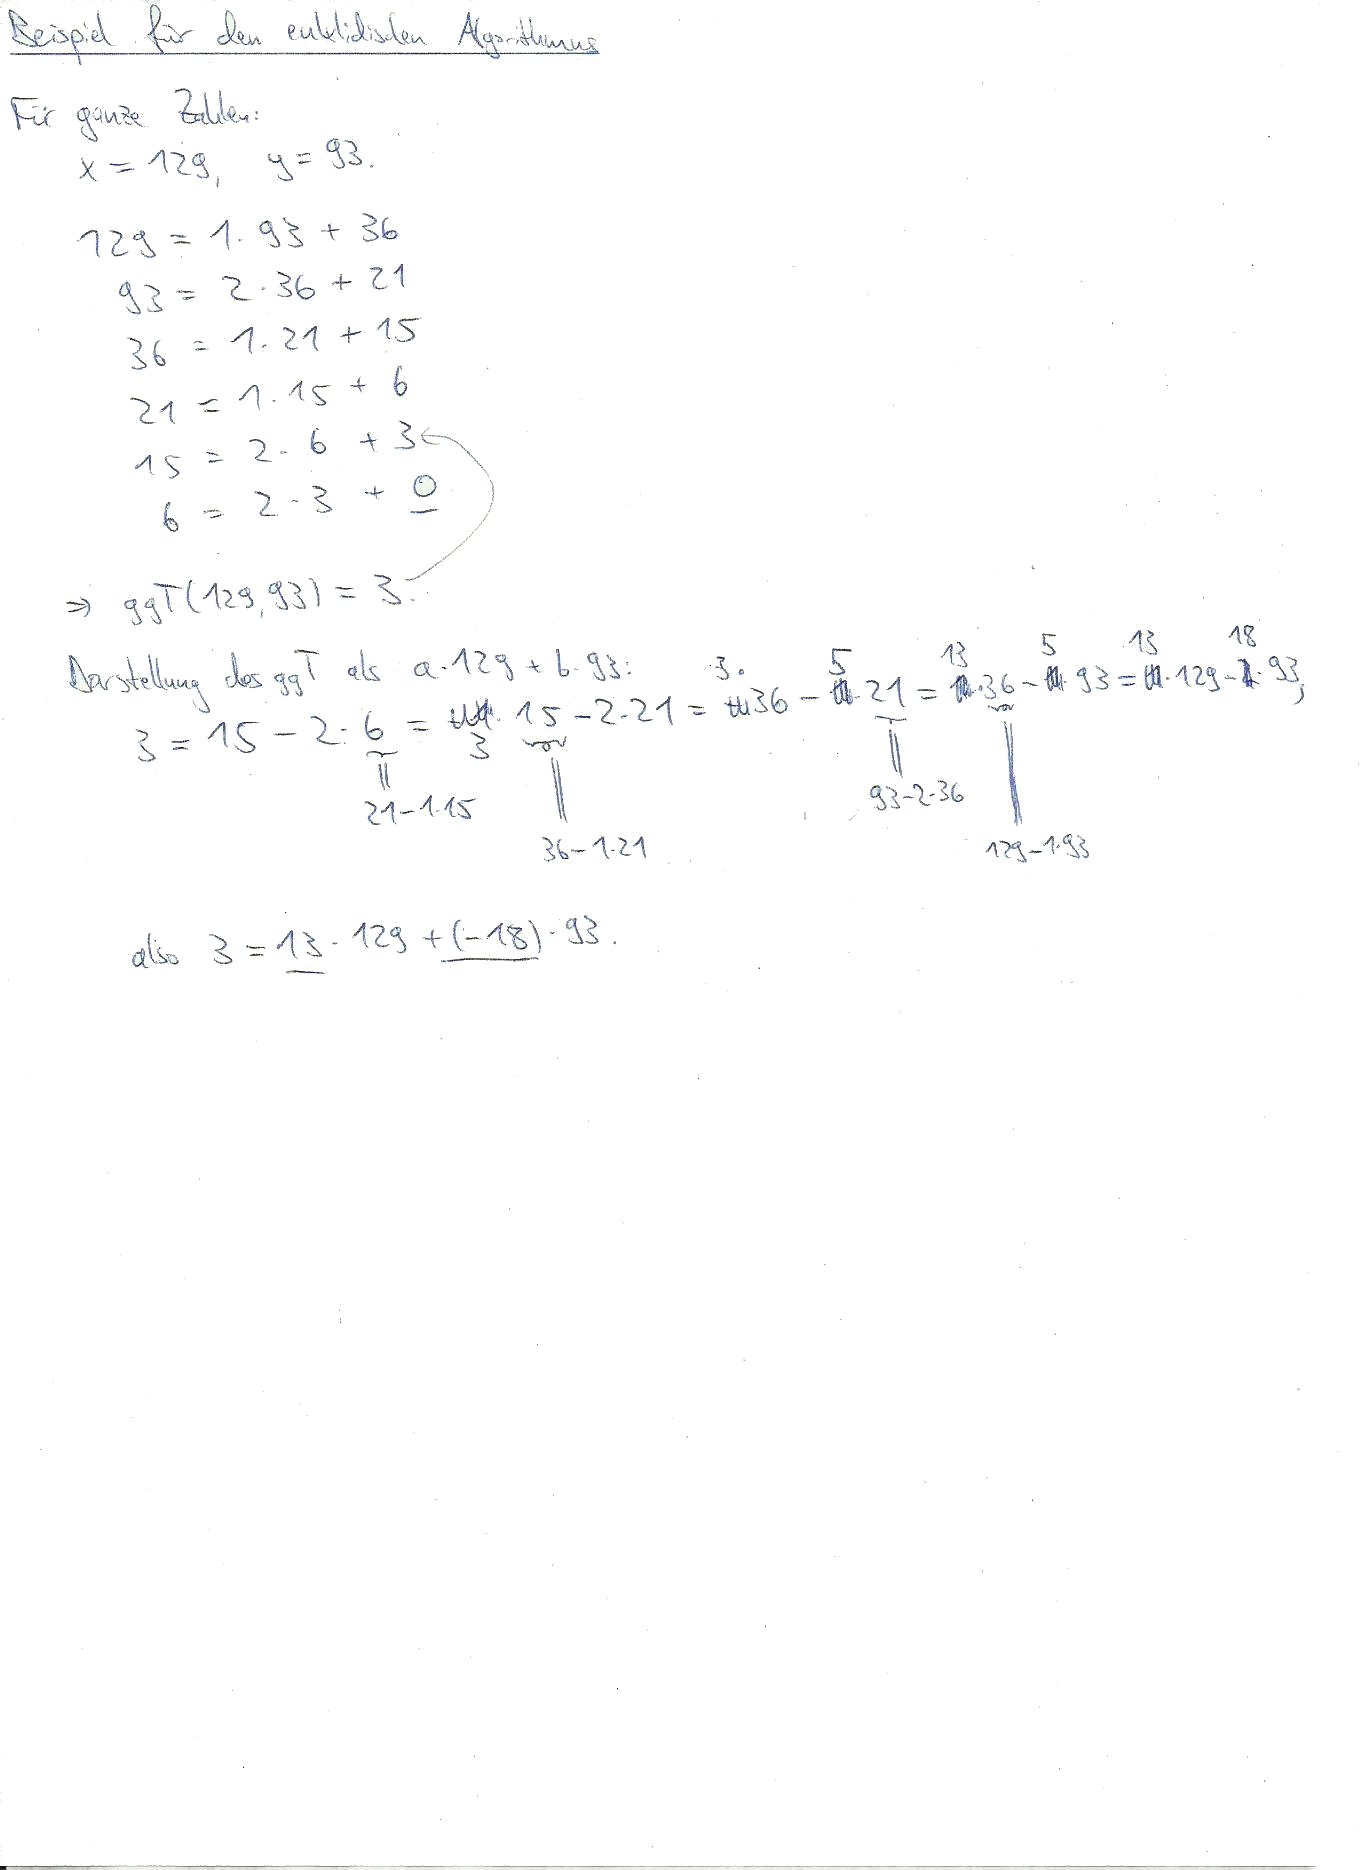 Beispiel für den euklidischen Algorithmus
Für ganze Zahlen:
x = 129, y = 93.
129 = 1 · 93 + 36
93 = 2 · 36 + 21
36 = 1 · 21 + 15
21 = 1 · 15 + 6
15 = 2 · 6 + 3
6 = 2 · 3 + 0
⇒ ggT(129, 93) = 3.
Darstellung des ggT als a · 129 + b · 93:
3 = 15 − 2 · 6 = 3 · 15 − 2 · 21 = 3 · 36 − 5 · 21 = 13 · 36 − 5 · 93 = 13 · 129 − 18 · 93,
21 − 1 · 15
36 − 1 · 21
93 − 2 · 36
129 − 1 · 93
also 3 = 13 · 129 + (−18) · 93.